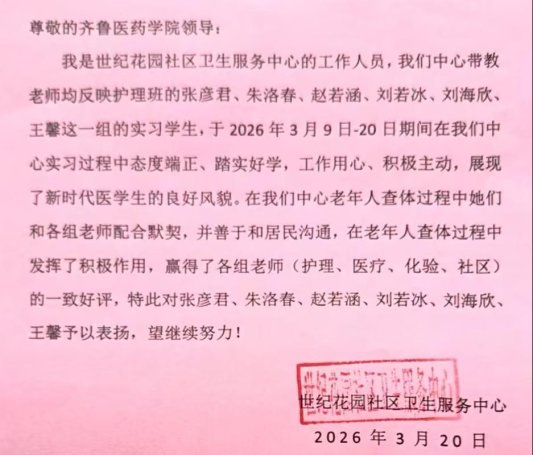 尊敬的齐鲁医药学院领导：
我是世纪花园社区卫生服务中心的工作人员，我们中心带教
老师均反映护理班的张彦君、朱洛春、赵若涵、刘若冰、刘海欣、
王馨这一组的实习学生，于 2026 年 3 月 9 日-20 日期间在我们中
心实习过程中态度端正、踏实好学，工作用心、积极主动，展现
了新时代医学生的良好风貌。在我们中心老年人查体过程中她们
和各组老师配合默契，并善于和居民沟通，在老年人查体过程中
发挥了积极作用，赢得了各组老师（护理、医疗、化验、社区）
的一致好评，特此对张彦君、朱洛春、赵若涵、刘若冰、刘海欣、
王馨予以表扬，望继续努力！
世纪花园社区卫生服务中心
世纪花园社区卫生服务中心
2026 年 3 月 20 日